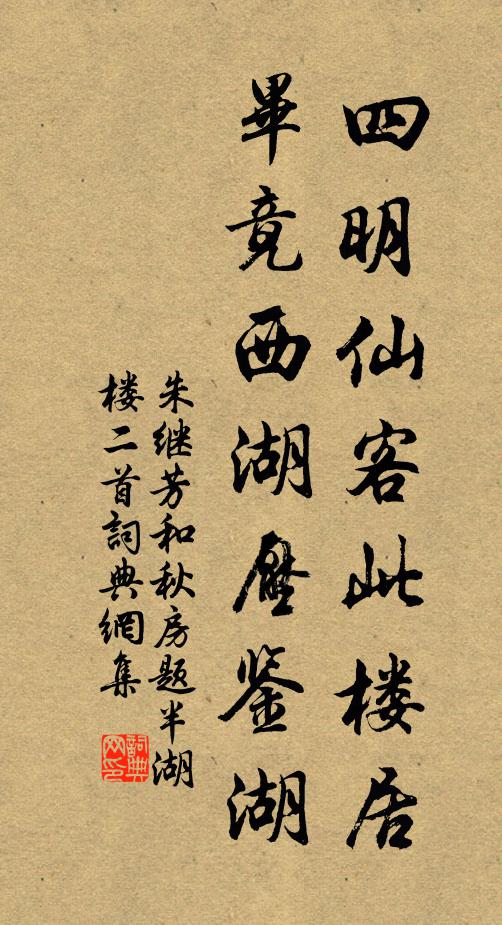 四明仙客此楼居
畢竟西湖壓鉴湖
朱继芳和秋房题半湖
楼二首詞典網集
詞典
网印